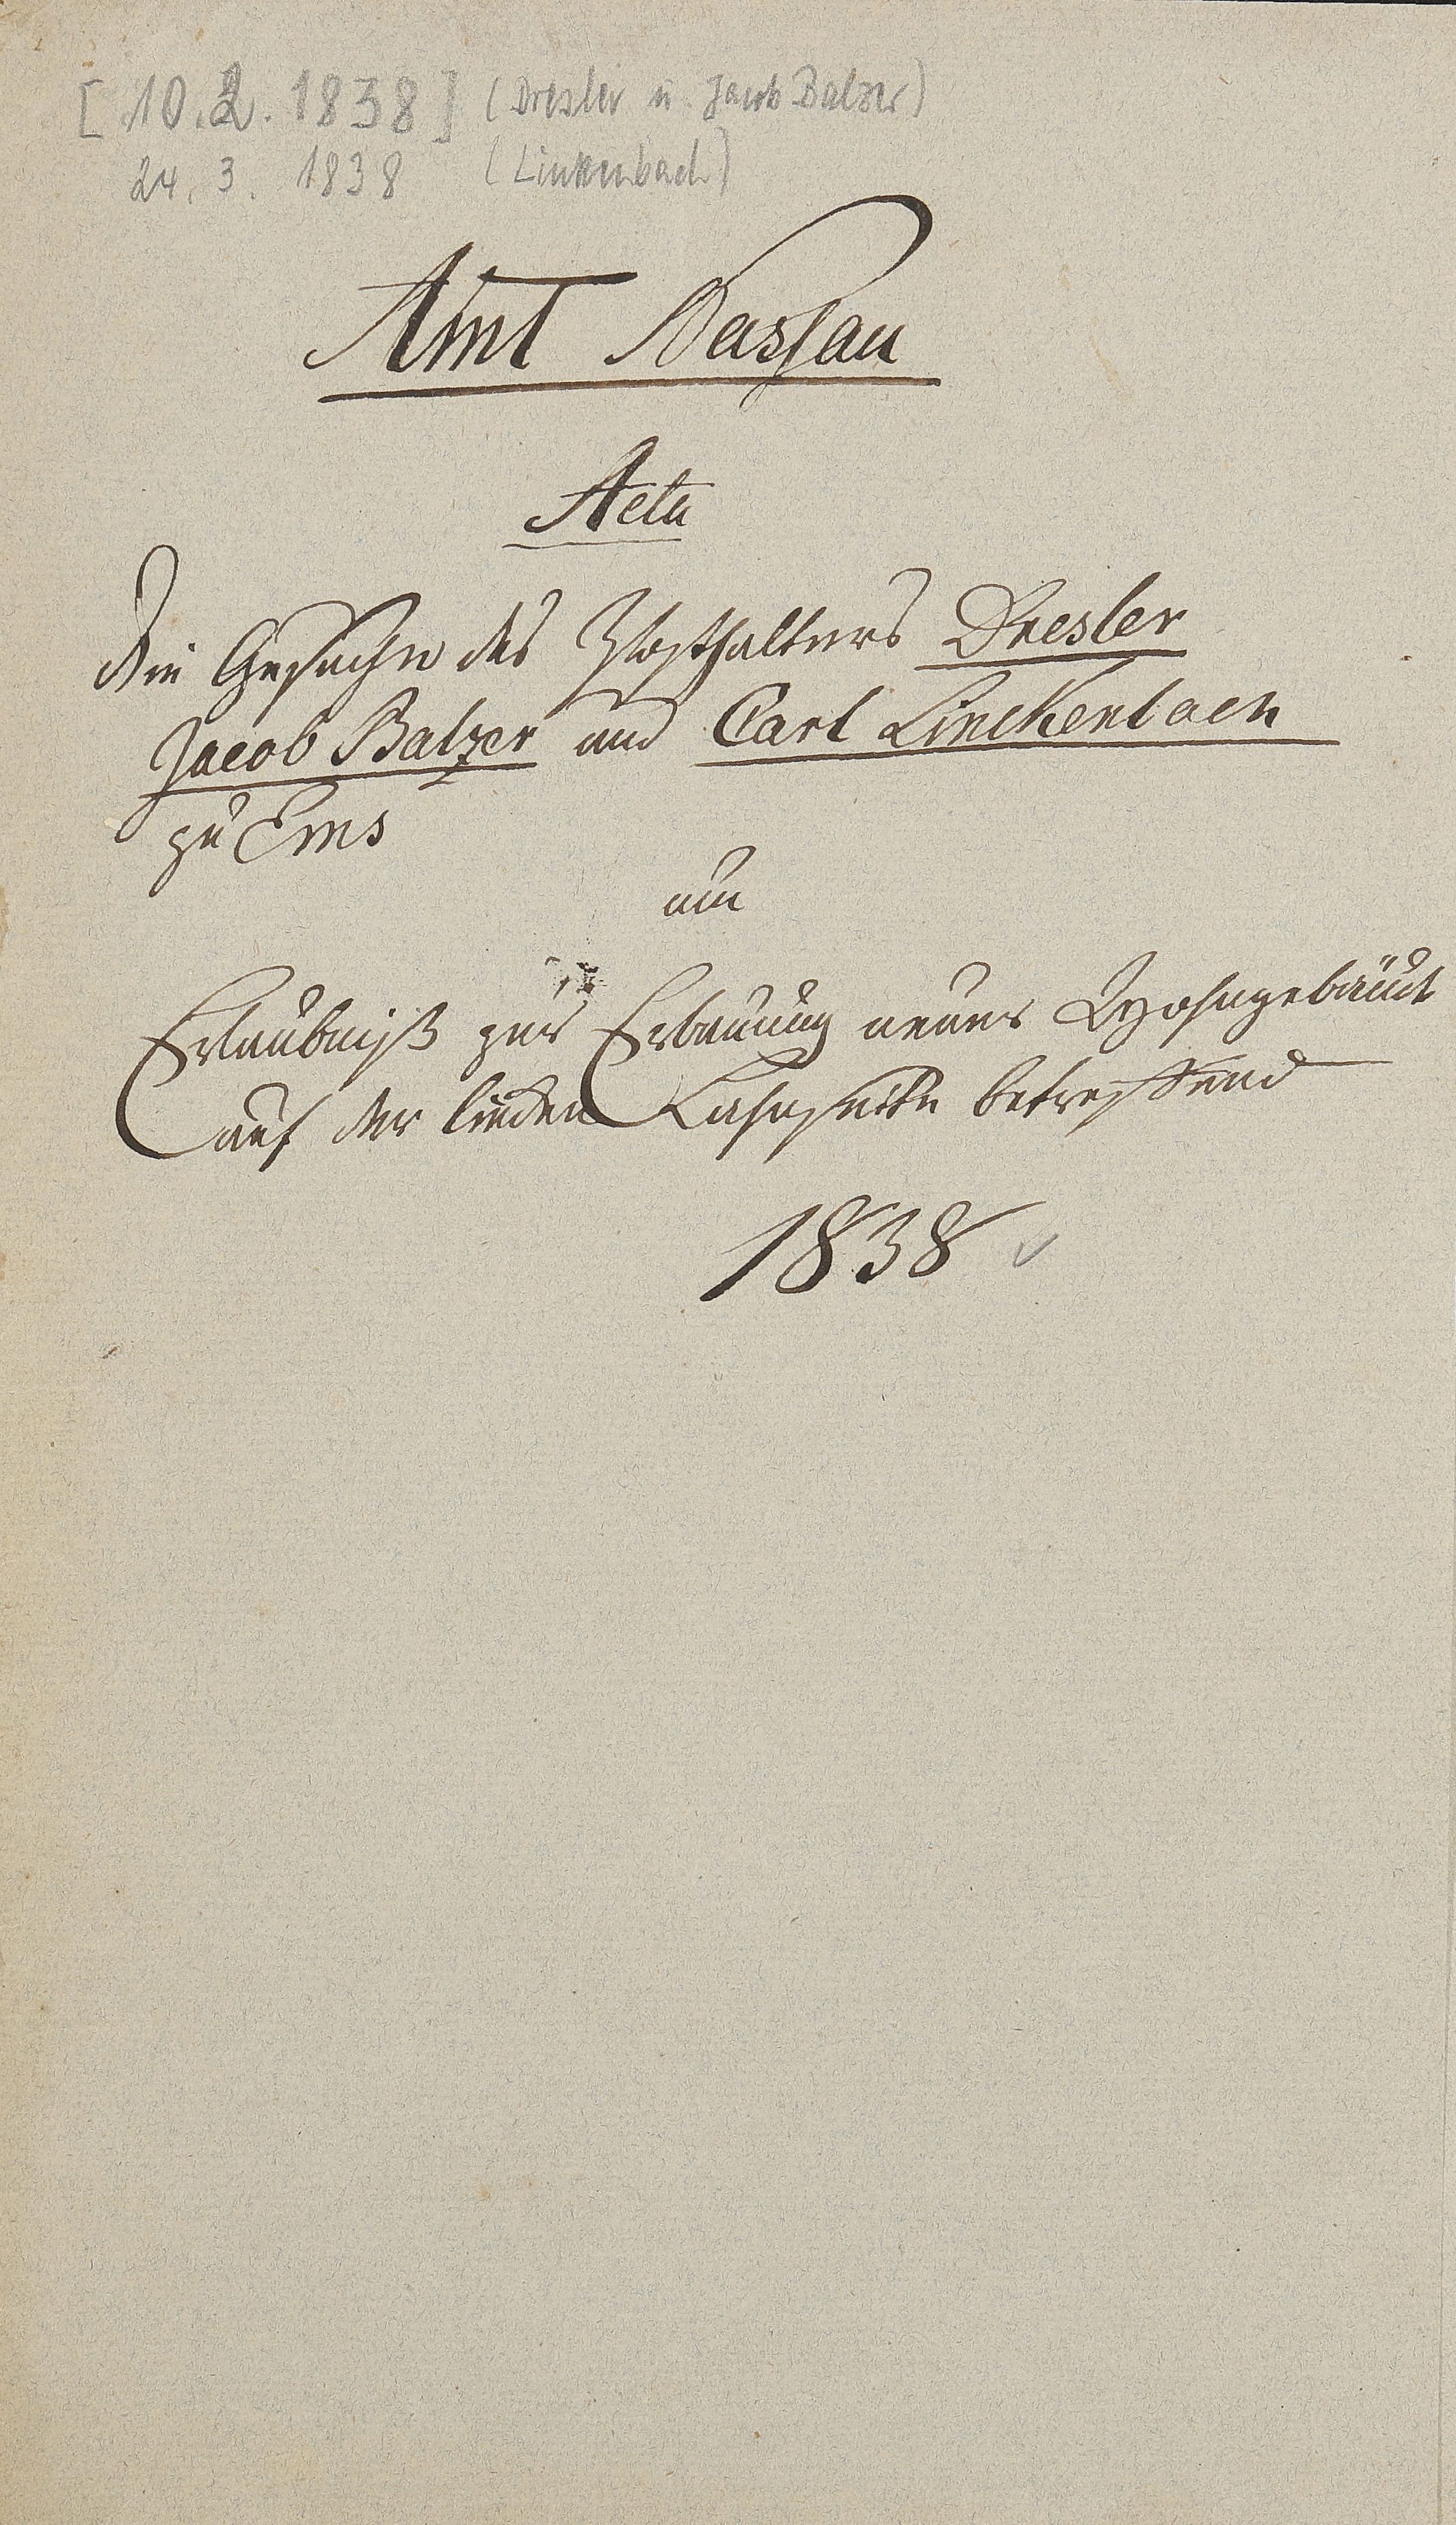 [10.2.1838] (Dresler u. Jacob Balzer)
24.3.1838 (Linkenbach)
Amt Nassau
Acta
die Gesuche des Posthalters Dresler
Jacob Balzer und Carl Linckenbach
zu Ems
um
Erlaubniß zur Erbauung neuer Wohngebäude
auf der linken Lahnseite betreffend
1838